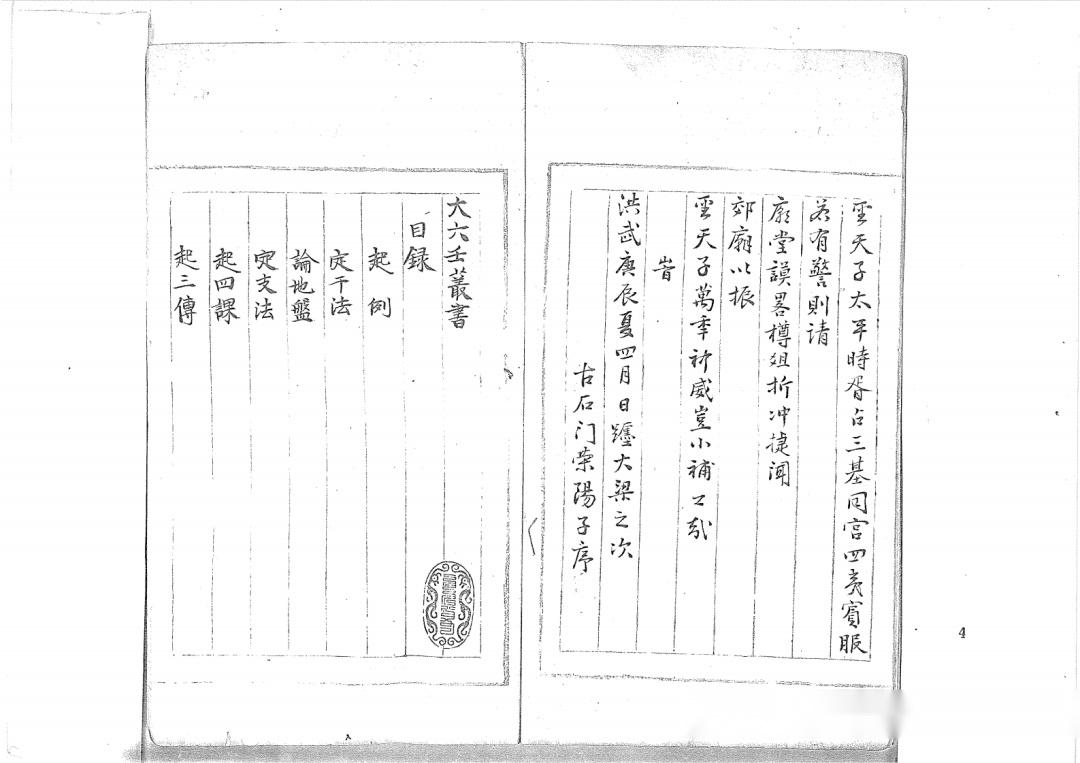 聖天子太平時胥占三基同宮四夷賓服
若有警則請
廟堂謨畧樽俎折冲捷闻
郊廟以振
聖天子萬季神威豈小補公哉
旹
洪武庚辰夏四月日躔大梁之次
古石门荣陽子序
大六壬叢書
目録
起例
定干法
論地盤
定支法
起四課
起三傳
4